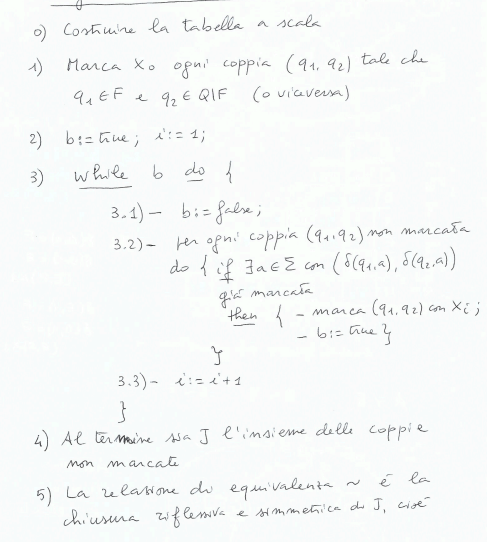 0) Costruire la tabella a scala
1) Marca X₀ ogni coppia (q₁, q₂) tale che
q₁ ∈ F e q₂ ∈ Q\F (o viceversa)
2) b := true; i := 1;
3) while b do {
3.1) - b := false;
3.2) - per ogni coppia (q₁, q₂) non marcata
do { if ∃a ∈ Σ con (δ(q₁,a), δ(q₂,a))
già marcata
then { - marca (q₁, q₂) con Xᵢ;
- b := true }
}
3.3) - i := i+1
}
4) Al termine sia J l'insieme delle coppie
non marcate
5) La relazione di equivalenza ~ é la
chiusura riflessiva e simmetrica di J, cioé